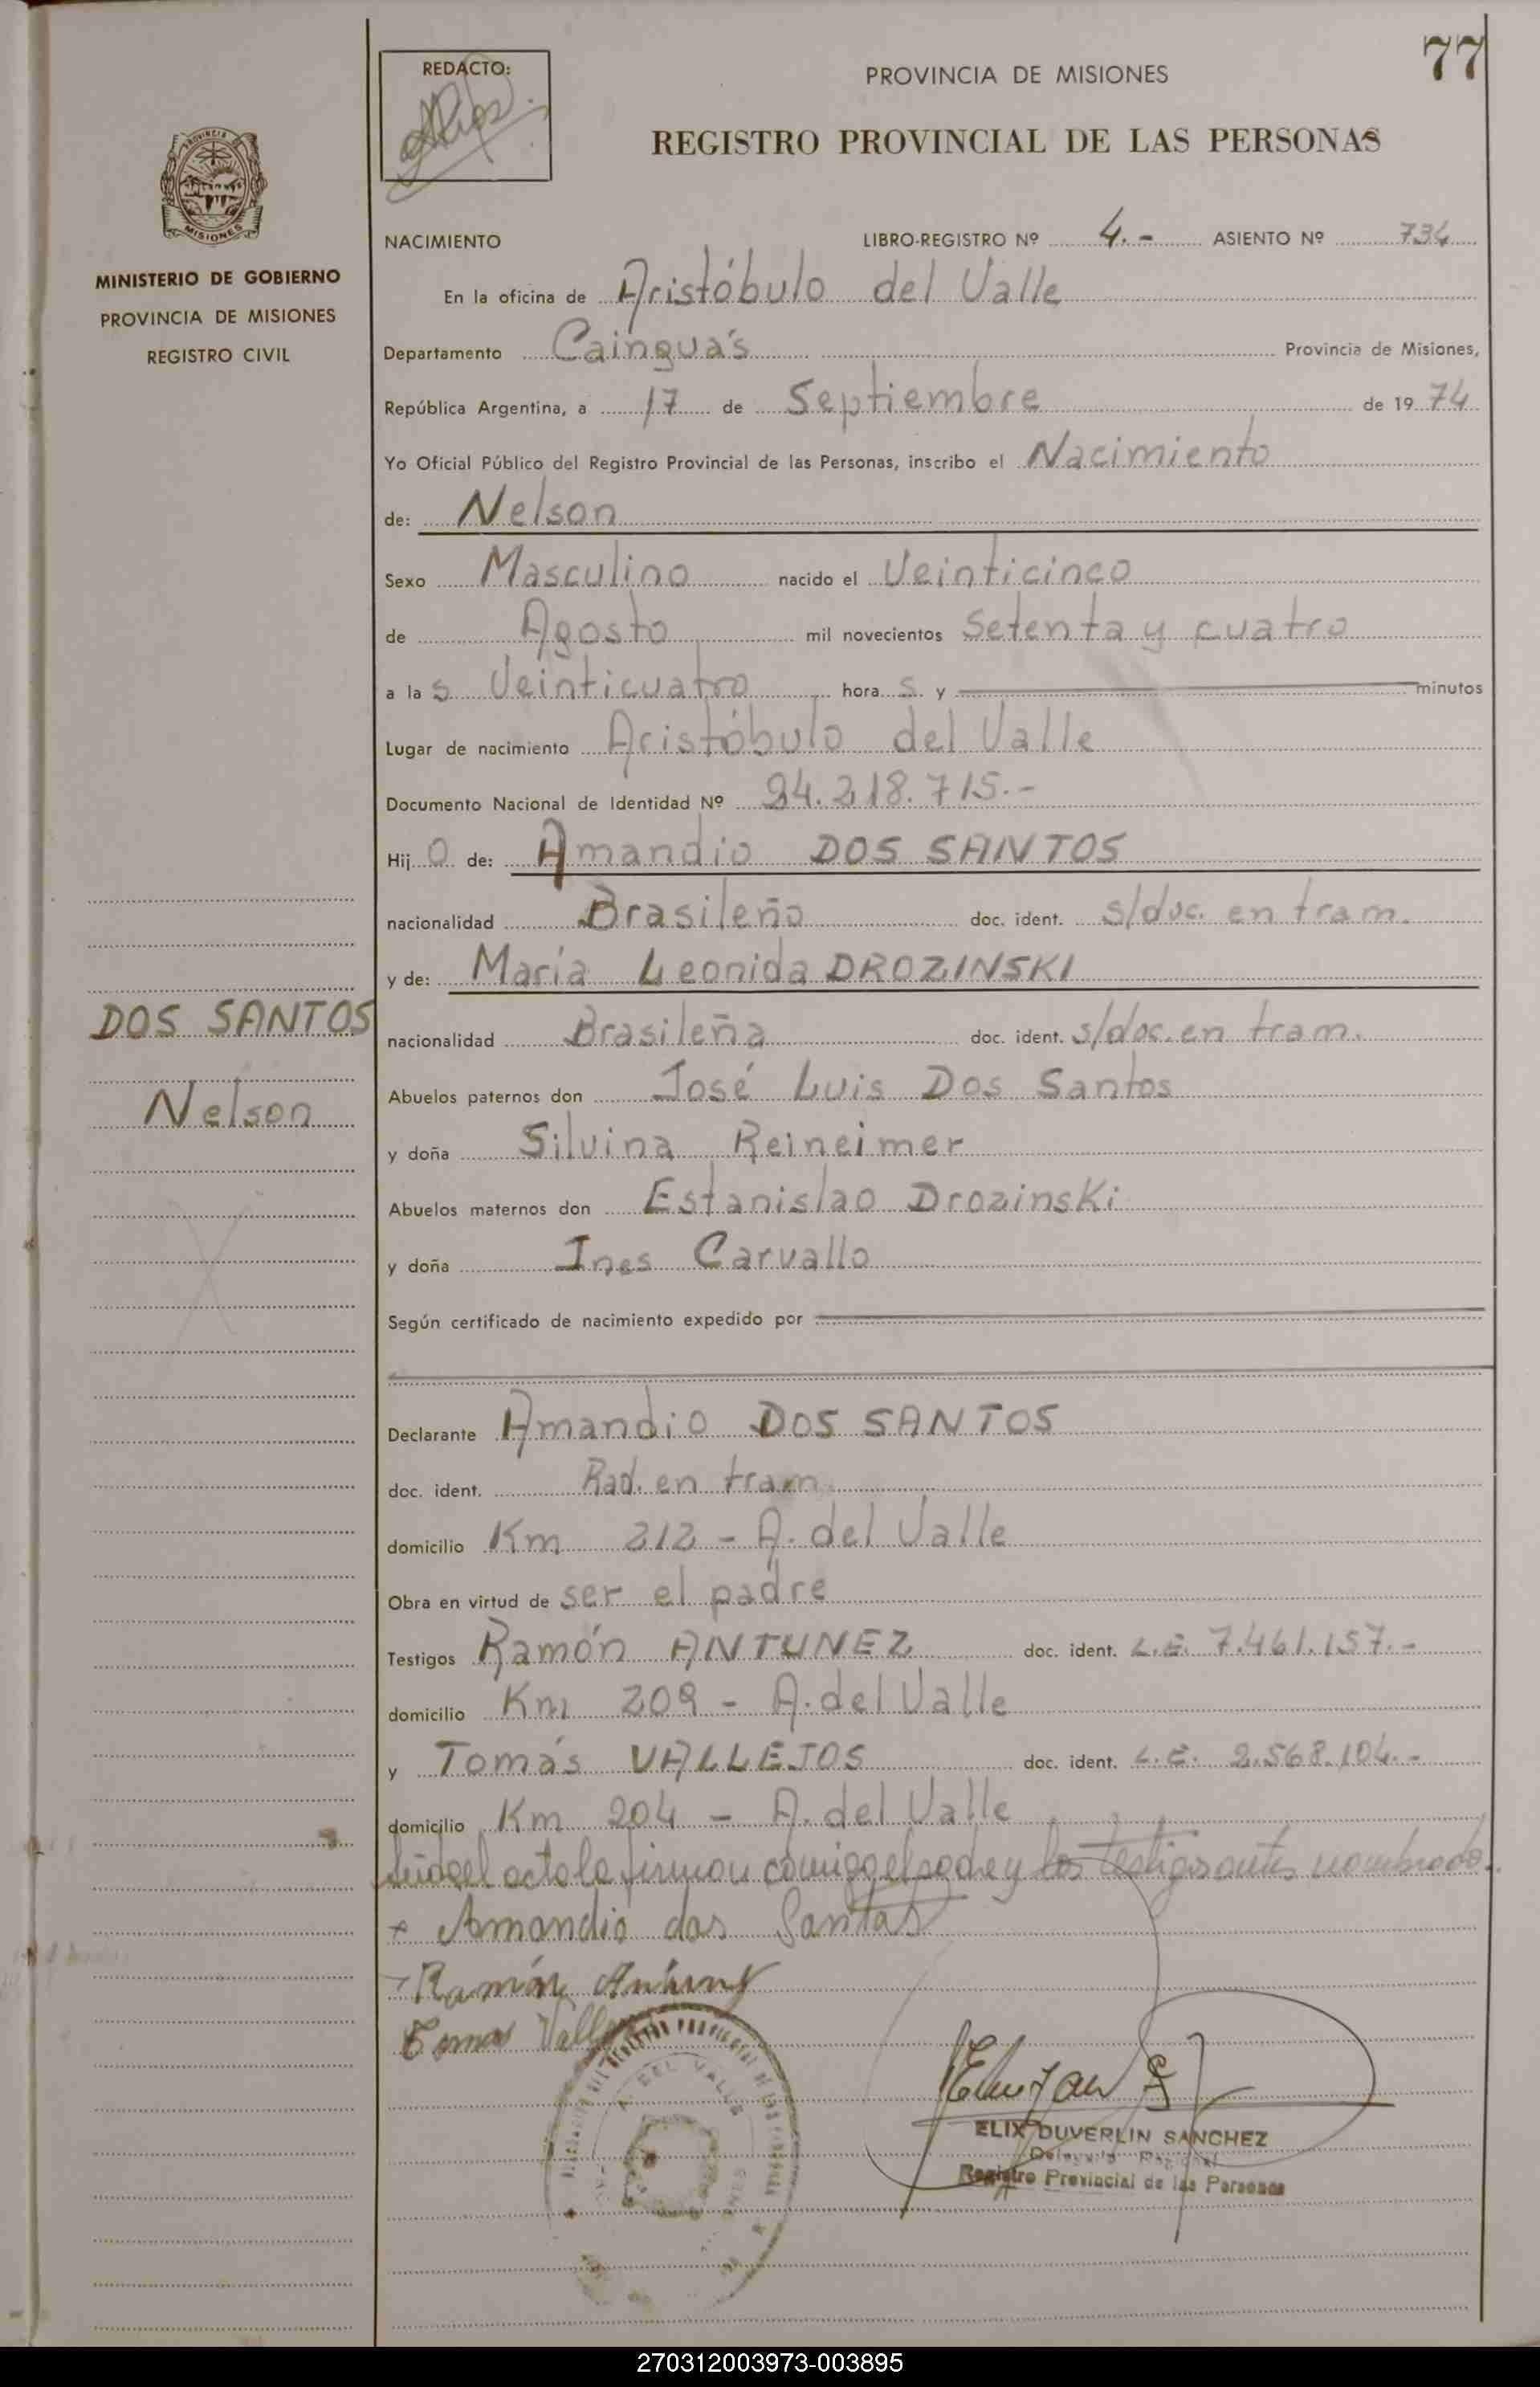 77
REDACTO:
PROVINCIA DE MISIONES
REGISTRO PROVINCIAL DE LAS PERSONAS
MISIONES
MINISTERIO DE GOBIERNO
PROVINCIA DE MISIONES
REGISTRO CIVIL
NACIMIENTO LIBRO-REGISTRO Nº 4.- ASIENTO Nº 734
En la oficina de Aristóbulo del Valle
Departamento Cainguás Provincia de Misiones,
República Argentina, a 17 de Septiembre de 19 74
Yo Oficial Público del Registro Provincial de las Personas, inscribo el Nacimiento
de: Nelson
Sexo Masculino nacido el Veinticinco
de Agosto mil novecientos Setenta y cuatro
a la s Veinticuatro hora s y minutos
Lugar de nacimiento Aristóbulo del Valle
Documento Nacional de Identidad Nº 24.218.715.-
Hij o de: Amandio DOS SANTOS
nacionalidad Brasileño doc. ident. s/doc. en tram.
y de: María Leonida DROZINSKI
DOS SANTOS
nacionalidad Brasileña doc. ident. s/doc. en tram.
Nelson
Abuelos paternos don José Luis Dos Santos
y doña Silvina Reineimer
Abuelos maternos don Estanislao Drozinski
y doña Ines Carvallo
Según certificado de nacimiento expedido por
Declarante Amandio DOS SANTOS
doc. ident. Rad. en tram.
domicilio Km 212 - A. del Valle
Obra en virtud de ser el padre
Testigos Ramón ANTUNEZ doc. ident. L.E. 7.461.157.-
domicilio Km 209 - A. del Valle
y Tomás VALLEJOS doc. ident. L.E. 2.568.104.-
domicilio Km 204 - A. del Valle
Leido el acta la firman conmigo el padre y los testigos antes nombrados.
Amandio dos Santos
Ramón Antunez
Tomas Vallejos
ELIX DUVERLIN SANCHEZ
Delegado Regional
Registro Provincial de las Personas
270312003973-003895